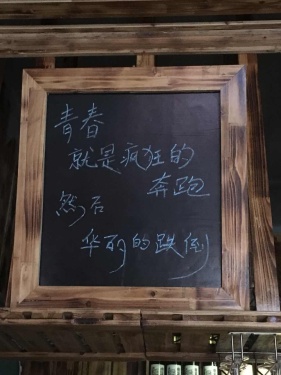 青春
就是疯狂的
奔跑
然后
华丽的跌倒